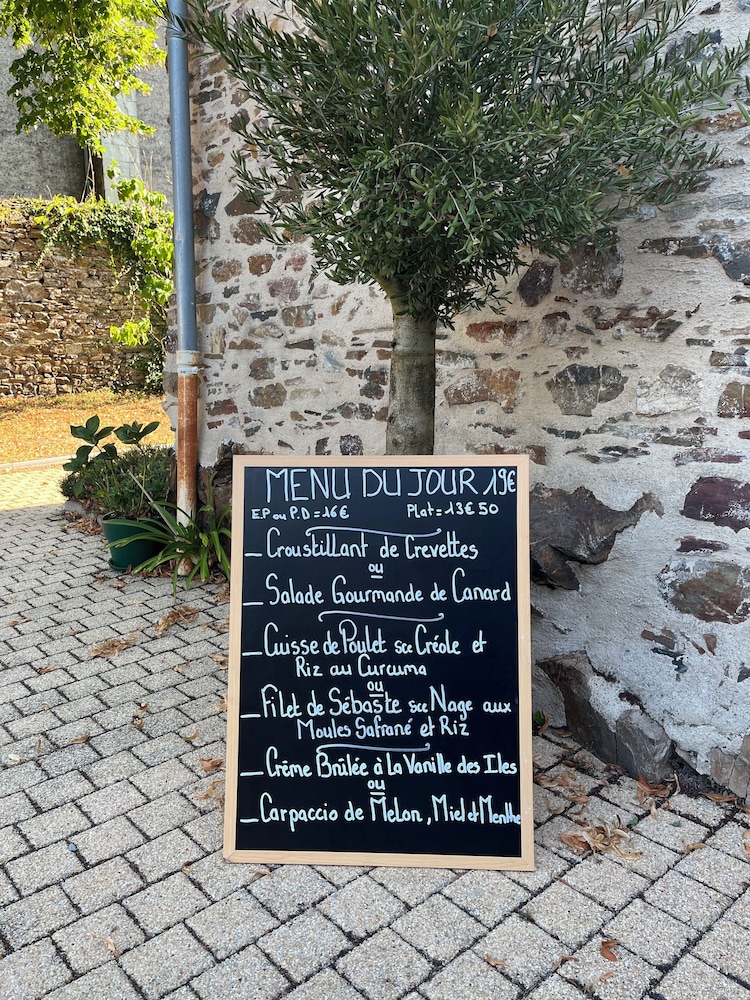 MENU DU JOUR 19€
E.P ou P.D = 16€ Plat = 13€50
_ Croustillant de Crevettes
ou
_ Salade Gourmande de Canard
_ Cuisse de Poulet sce Créole et
Riz au Curcuma
ou
_ Filet de Sébaste sce Nage aux
Moules Safrané et Riz
_ Crême Brûlée à La Vanille des Iles
ou
_ Carpaccio de Melon, Miel et Menthe